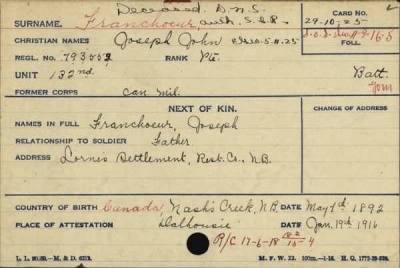 Deceased. D.N.S.
SURNAME. Franchoeur, auth. S.E.P.
CARD NO.
29-10-25
CHRISTIAN NAMES Joseph John
FOLL.
REGL. NO. 793003 RANK Pte.
UNIT 132nd Batt.
FORMER CORPS Can. Mil.
NEXT OF KIN. CHANGE OF ADDRESS
NAMES IN FULL Franchoeur, Joseph
RELATIONSHIP TO SOLDIER Father
ADDRESS Lornes Settlement, Rest. Co., N.B.
COUNTRY OF BIRTH Canada, Nash's Creek, N.B. DATE May 1st 1892
PLACE OF ATTESTATION Dalhousie DATE Jan. 19th 1916
R/C 17-6-18
M. F. W. 22.